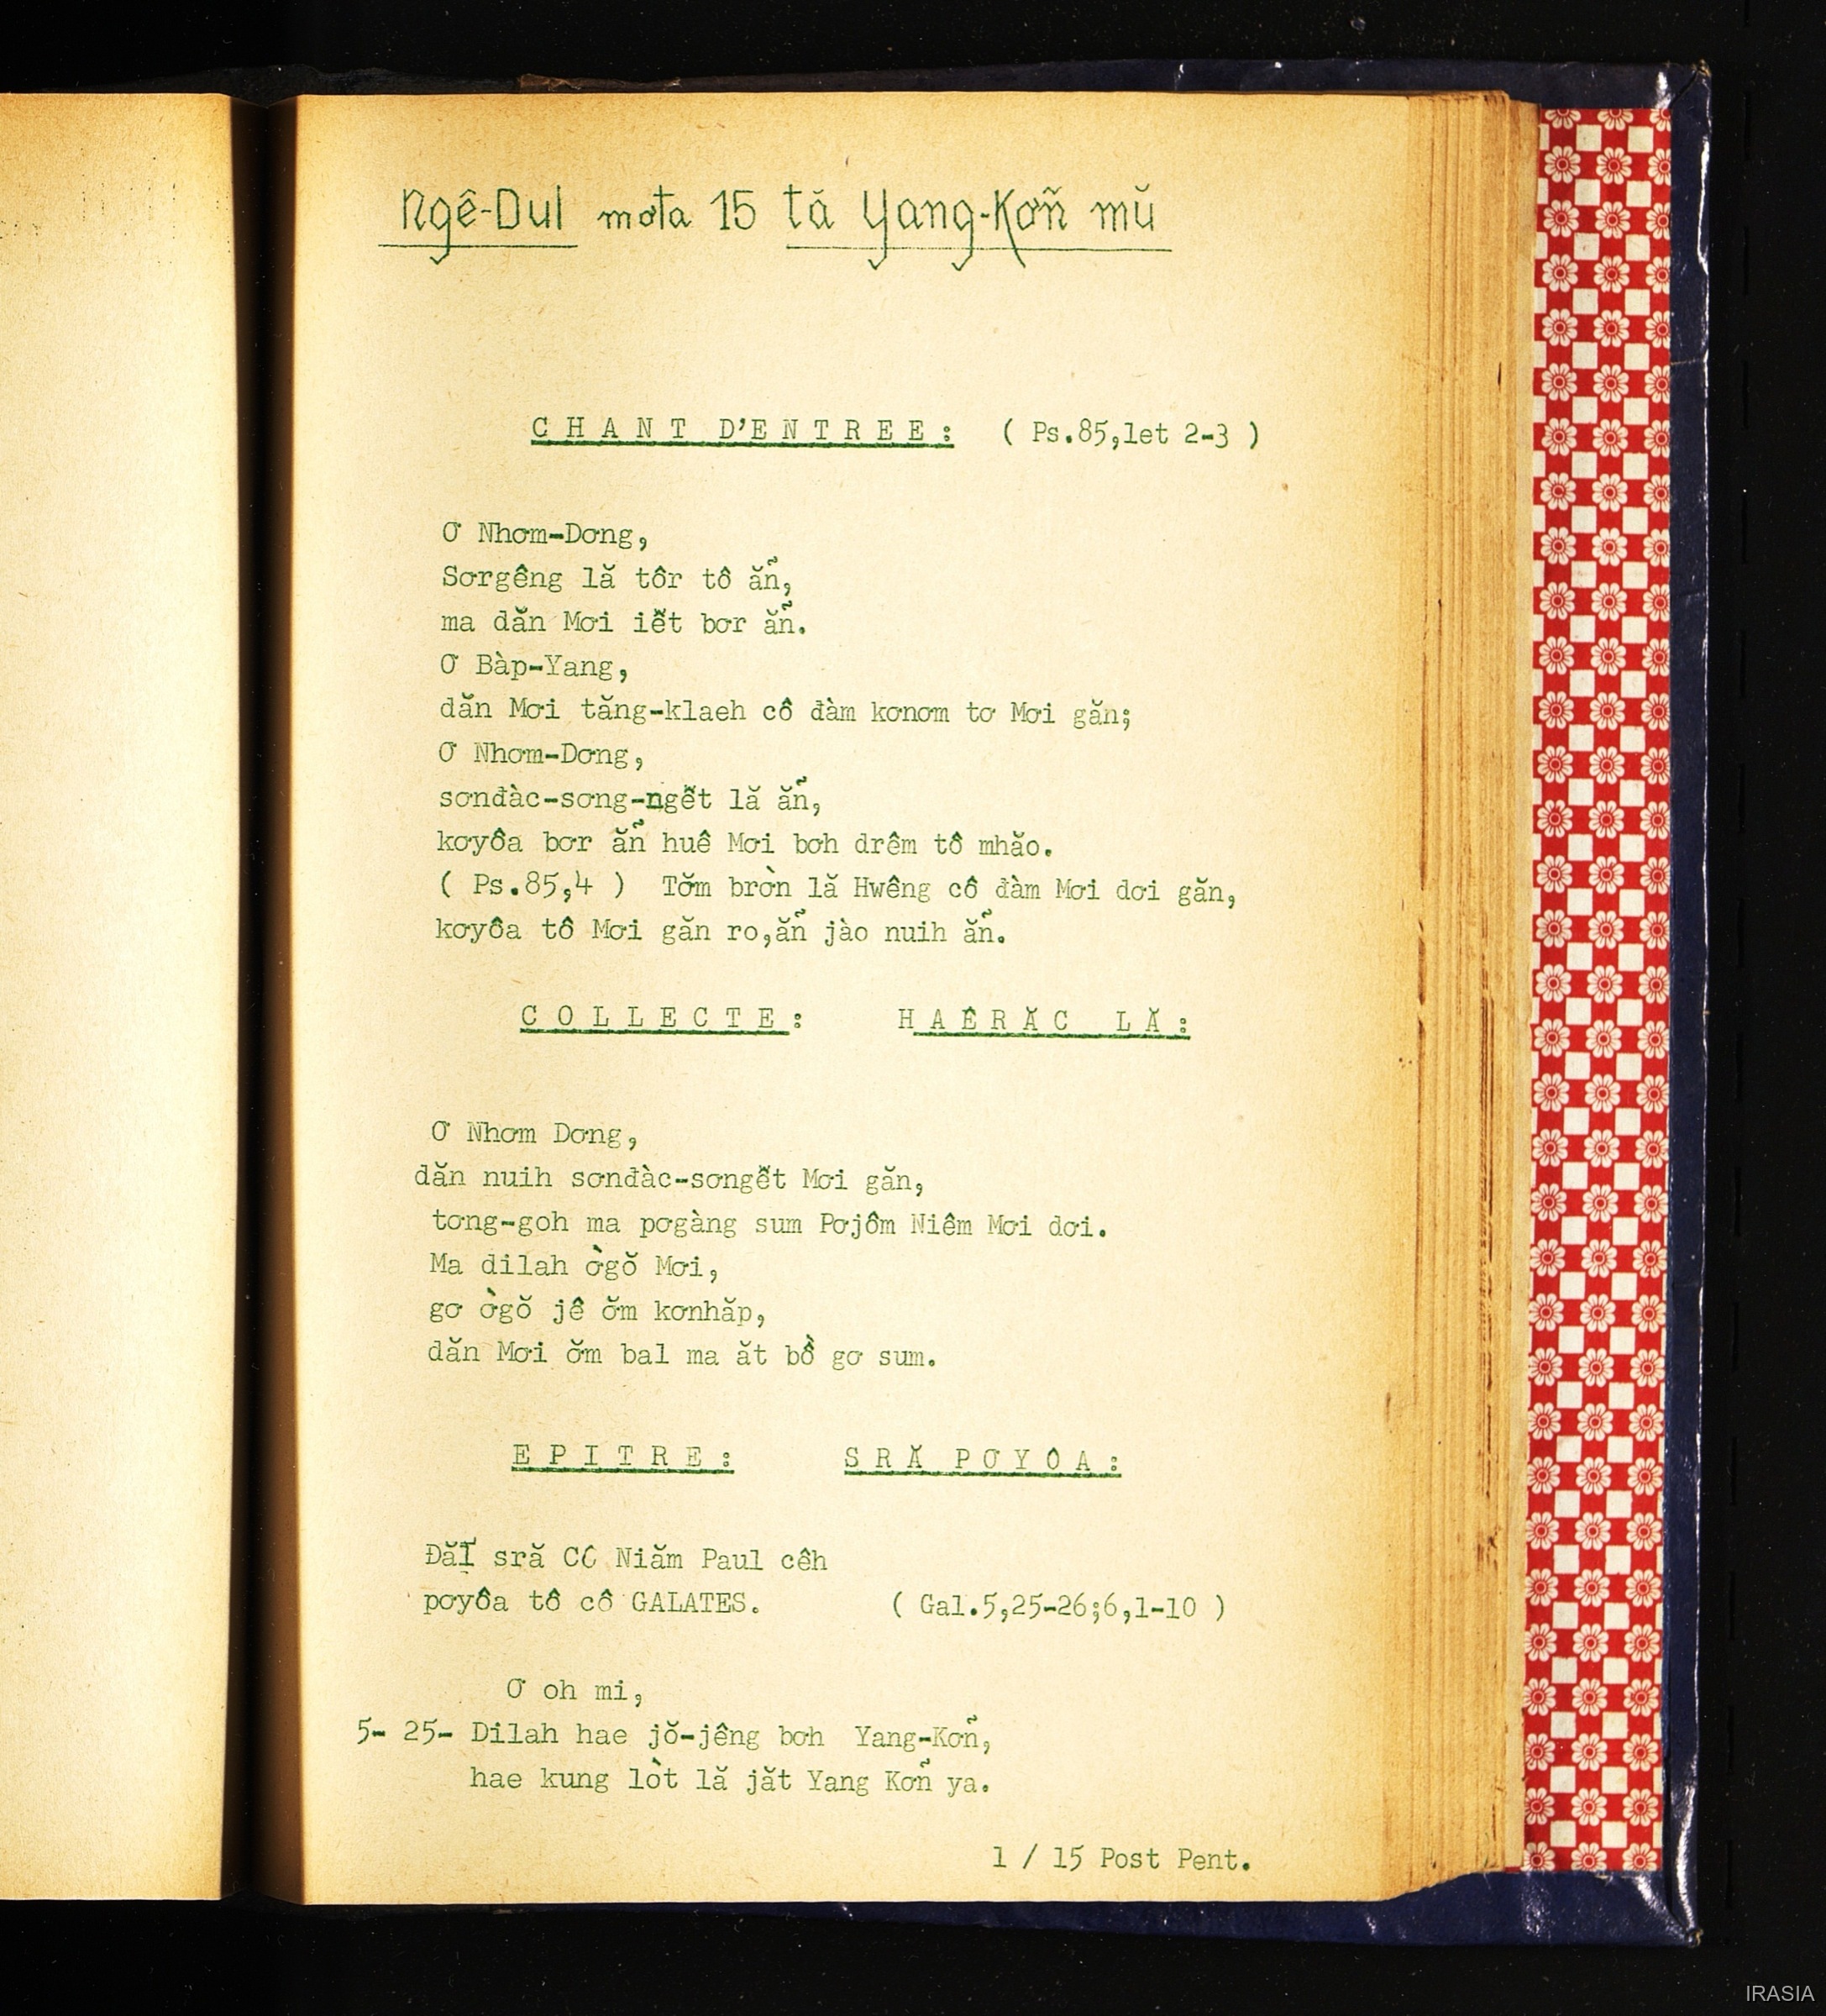 Ngê-Dul mơta 15 tă Yang-Kơñ mŭ
CHANT D'ENTREE: ( Ps.85,let 2-3 )
Ơ Nhơm-Dơng,
Sơrgêng lă tôr tô ăñ,
ma dăn Mơi iễt bơr ăñ.
Ơ Bàp-Yang,
dăn Mơi tăng-klaeh cô đàm kơnơm tơ Mơi găn;
Ơ Nhơm-Dơng,
sơnđàc-sơng-ngễt lă ăñ,
kơyôa bơr ăñ huê Mơi bơh drêm tô mhăo.
( Ps.85,4 ) Tơ̆m brờn lă Hwêng cô đàm Mơi dơi găn,
kơyôa tô Mơi găn ro,ăñ jào nuih ăñ.
COLLECTE: HAÊRĂC LĂ:
Ơ Nhơm Dơng,
dăn nuih sơnđàc-sơngễt Mơi găn,
tơng-goh ma pơgàng sum Pơjôm Niêm Mơi dơi.
Ma dilah ờgŏ Mơi,
gơ ờgŏ jê ơ̆m kơnhăp,
dăn Mơi ơ̆m bal ma ăt bồ gơ sum.
EPITRE: SRĂ PƠYÔA:
sră CÔ Niăm Paul cêh
pơyôa tô cô GALATES. ( Gal.5,25-26;6,1-10 )
Ơ oh mi,
5- 25- Dilah hae jŏ-jêng bơh Yang-Kơñ,
hae kung lòt lă jăt Yang Kơñ ya.
1 / 15 Post Pent.
IRASIA